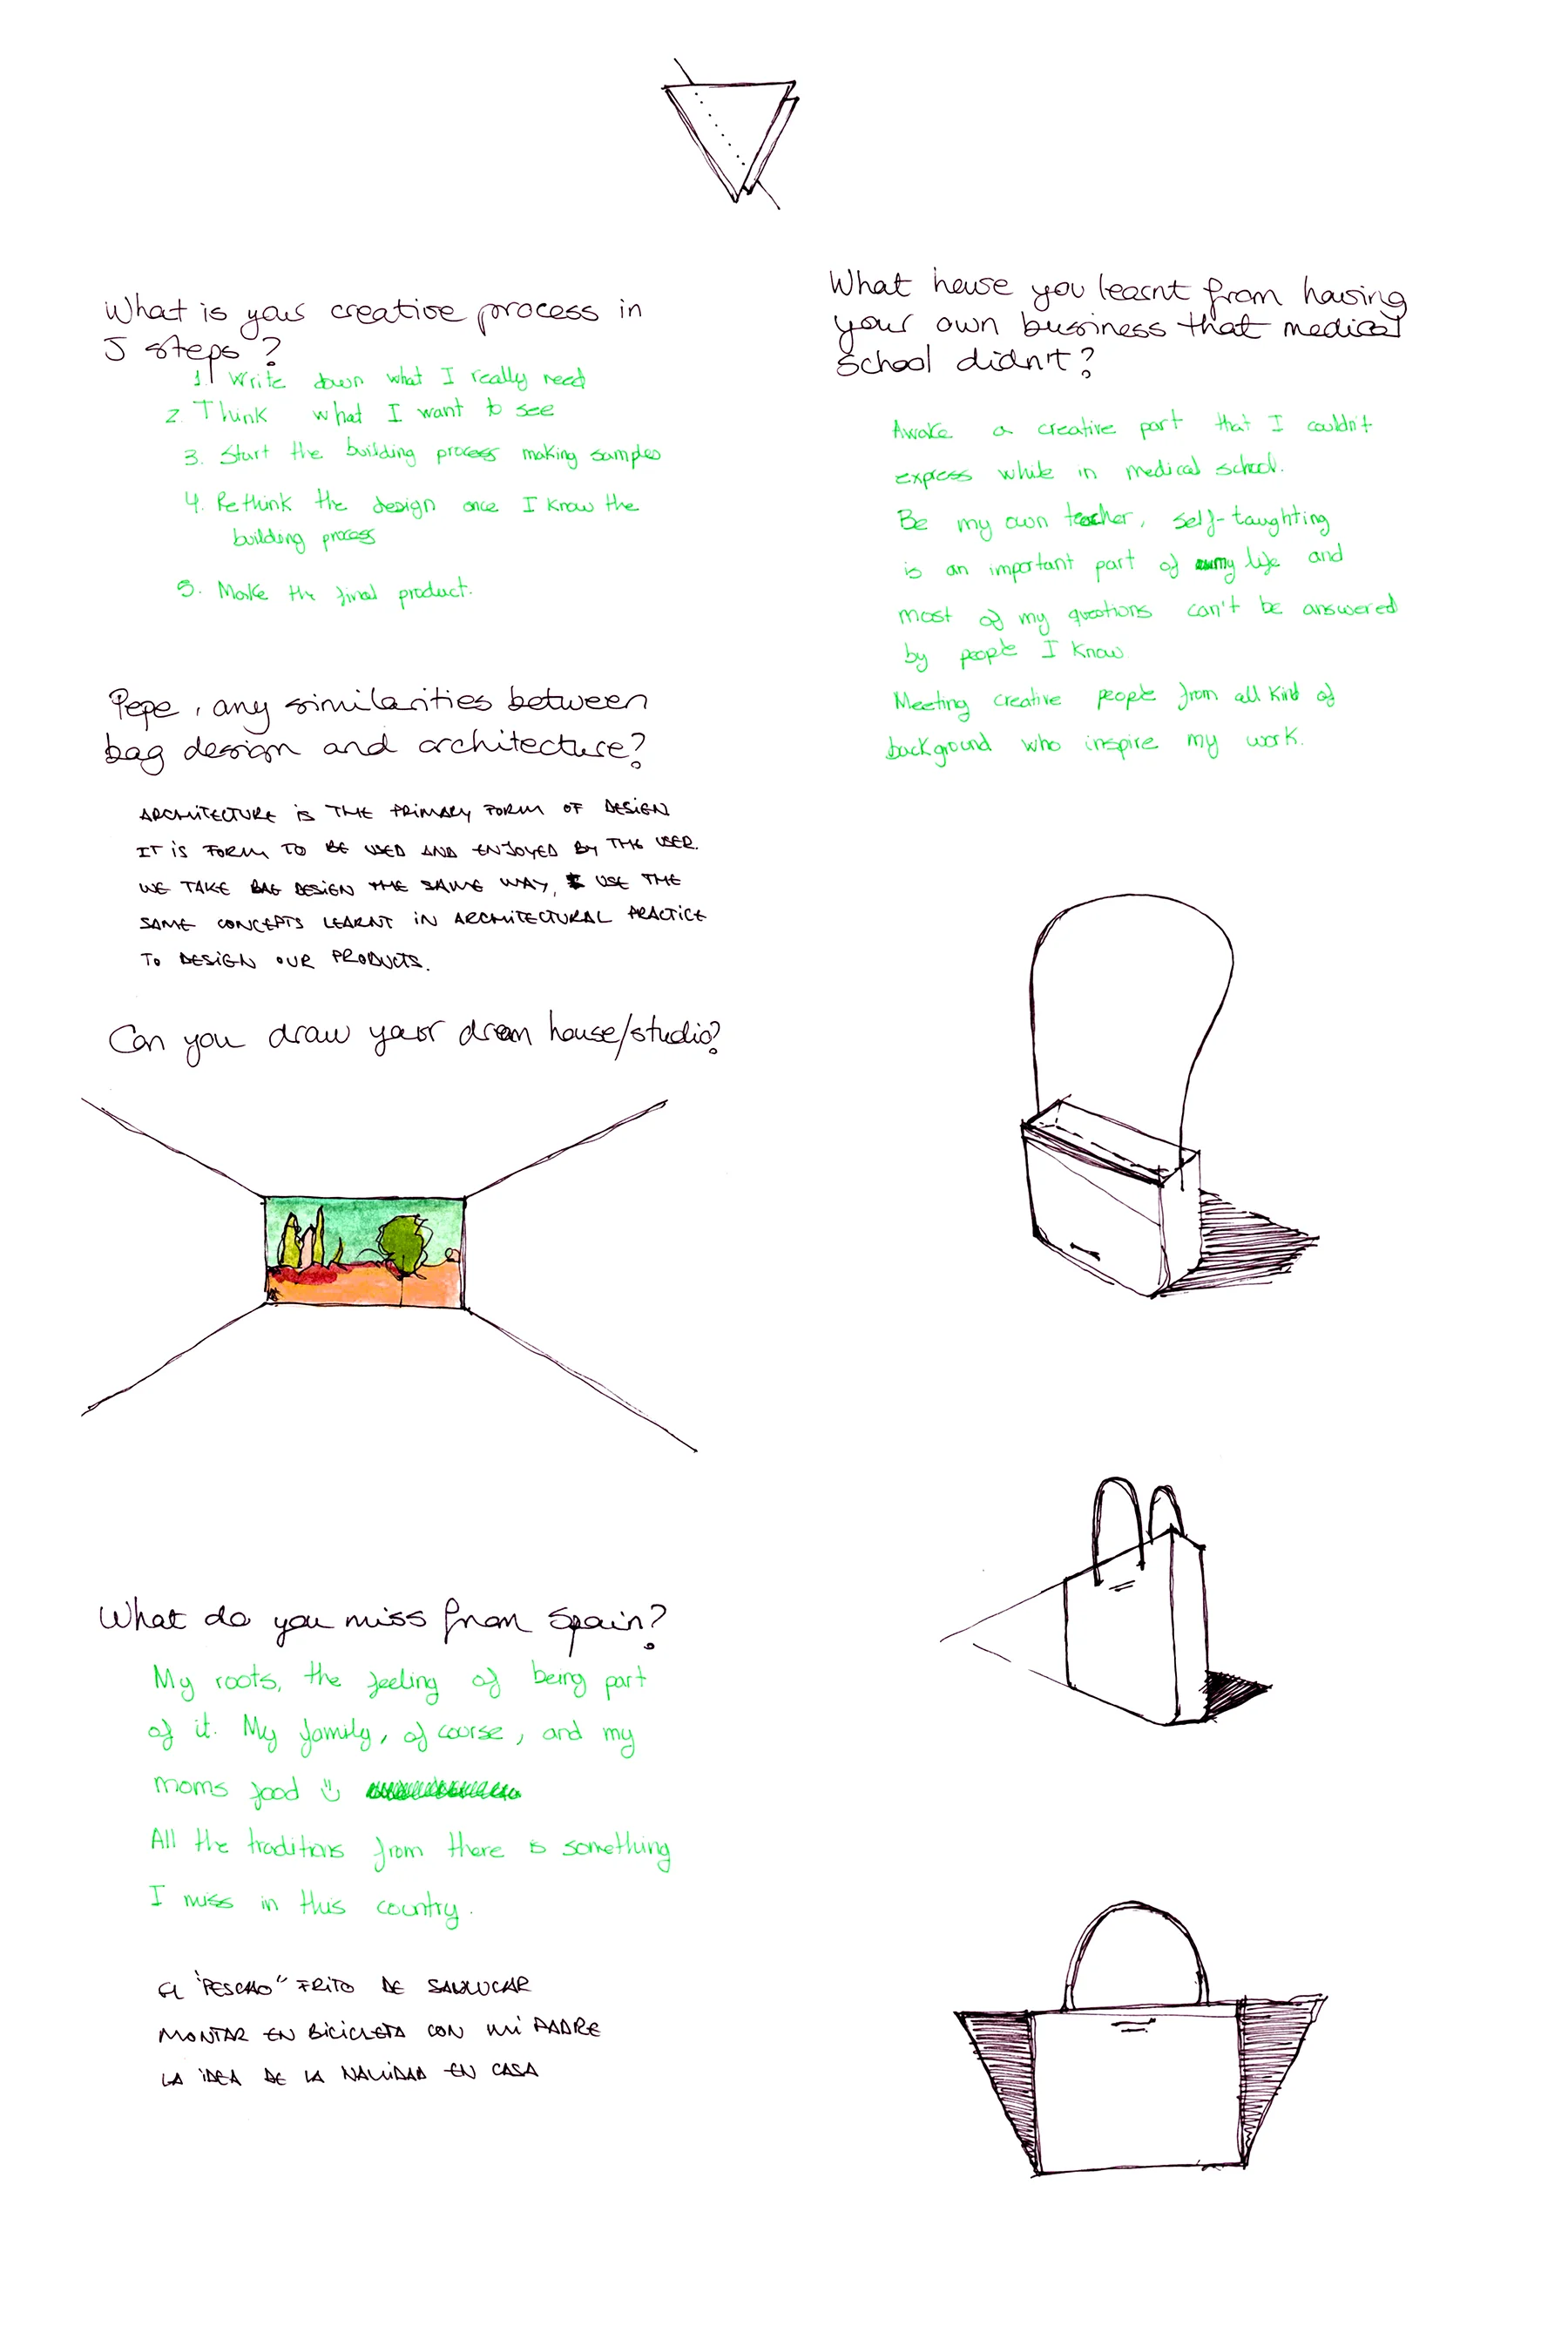 What is your creative process in
5 steps?
1. Write down what I really need
2. Think what I want to see
3. Start the building process making samples
4. Rethink the design once I know the
building process
5. Make the final product.
Pepe, any similarities between
bag design and architecture?
ARCHITECTURE IS THE PRIMARY FORM OF DESIGN
IT IS FORM TO BE USED AND ENJOYED BY THE USER.
WE TAKE BAG DESIGN THE SAME WAY, USE THE
SAME CONCEPTS LEARNT IN ARCHITECTURAL PRACTICE
TO DESIGN OUR PRODUCTS.
Can you draw your dream house/studio?
What do you miss from Spain?
My roots, the feeling of being part
of it. My family, of course, and my
moms food
All the traditions from there is something
I miss in this country.
EL "PESCAO" FRITO DE SANLUCAR
MONTAR EN BICICLETA CON MI PADRE
LA IDEA DE LA NAVIDAD EN CASA
What have you learnt from having
your own bussiness that medical
school didn't?
Awake a creative part that I couldn't
express while in medical school.
Be my own teacher, self-taughting
is an important part of my life and
most of my questions can't be answered
by people I know
Meeting creative people from all kind of
background who inspire my work.